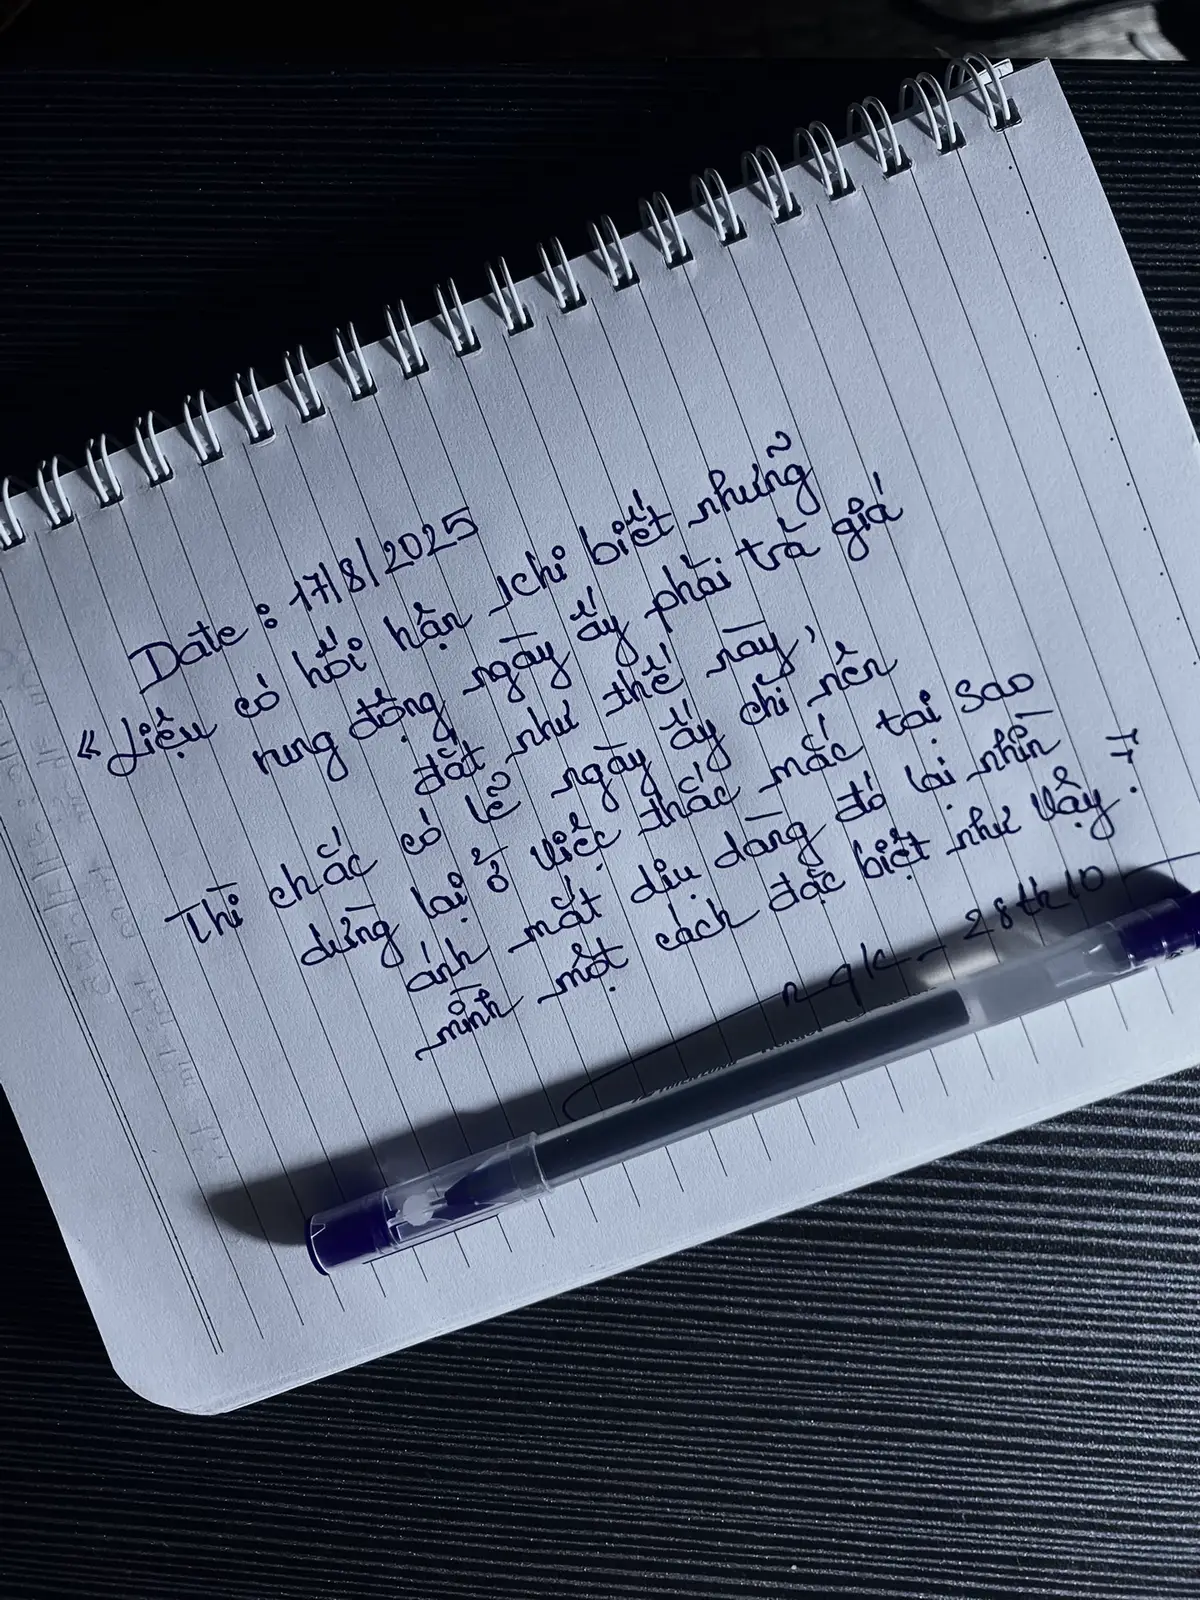 Date: 17/8/2025
"Liệu có hối hận khi biết những
rung động ngày ấy phải trả giá
đắt như thế này,
Thì chắc có lẽ ngày ấy chỉ nên
dừng lại ở việc thắc mắc tại sao
ánh mắt dịu dàng đó lại nhìn
mình một cách đặc biệt như vậy?
28th10